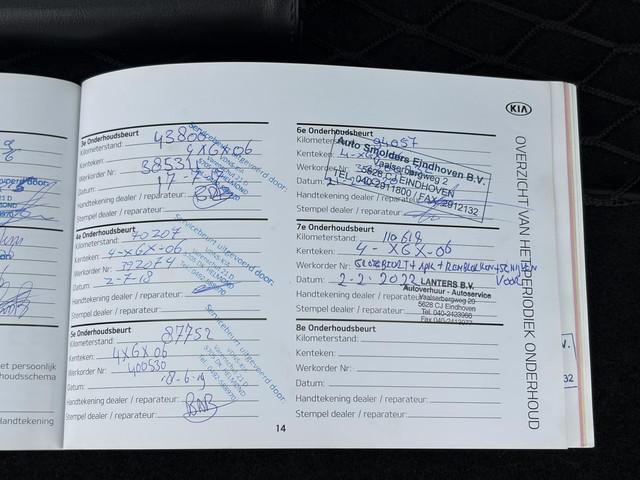 3e Onderhoudsbeurt
Kilometerstand: 43800
Kenteken: 4XGX06
Werkorder Nr: 38534
Datum: 17-7-17
Handtekening dealer / reparateur:
Stempel dealer / reparateur:
Servicebeurt uitgevoerd door:
4e Onderhoudsbeurt
Kilometerstand: 70207
Kenteken: 4-XGX-06
Werkorder Nr: 392074
Datum: 2-7-18
Handtekening dealer / reparateur:
Stempel dealer / reparateur:
Servicebeurt uitgevoerd door:
5e Onderhoudsbeurt
Kilometerstand: 87752
Kenteken: 4XGX06
Werkorder Nr: 400530
Datum: 18-6-19
Handtekening dealer / reparateur:
Stempel dealer / reparateur:
Servicebeurt uitgevoerd door:
14
6e Onderhoudsbeurt
Kilometerstand: 94057
Kenteken: 4-XGX-06
Werkorder Nr:
Datum:
Handtekening dealer / reparateur:
Stempel dealer / reparateur:
Auto Smolders Eindhoven B.V.
Vaalserbergweg 2
5628 CJ EINDHOVEN
TEL. 040-2911800 / FAX 2912132
7e Onderhoudsbeurt
Kilometerstand: 110618
Kenteken: 4-XGX-06
Werkorder Nr: GROTEBEURT + APK + REMBLOKKEN +
VOOR
Datum: 2-2-2022
Handtekening dealer / reparateur:
Stempel dealer / reparateur:
LANTERS B.V.
Autoverhuur - Autoservice
Vaalserbergweg 20
5628 CJ Eindhoven
Tel. 040-2423966
8e Onderhoudsbeurt
Kilometerstand:
Kenteken:
Werkorder Nr:
Datum:
Handtekening dealer / reparateur:
Stempel dealer / reparateur:
KIA
OVERZICHT VAN HET PERIODIEK ONDERHOUD
et persoonlijk
houdsschema
Handtekening
32